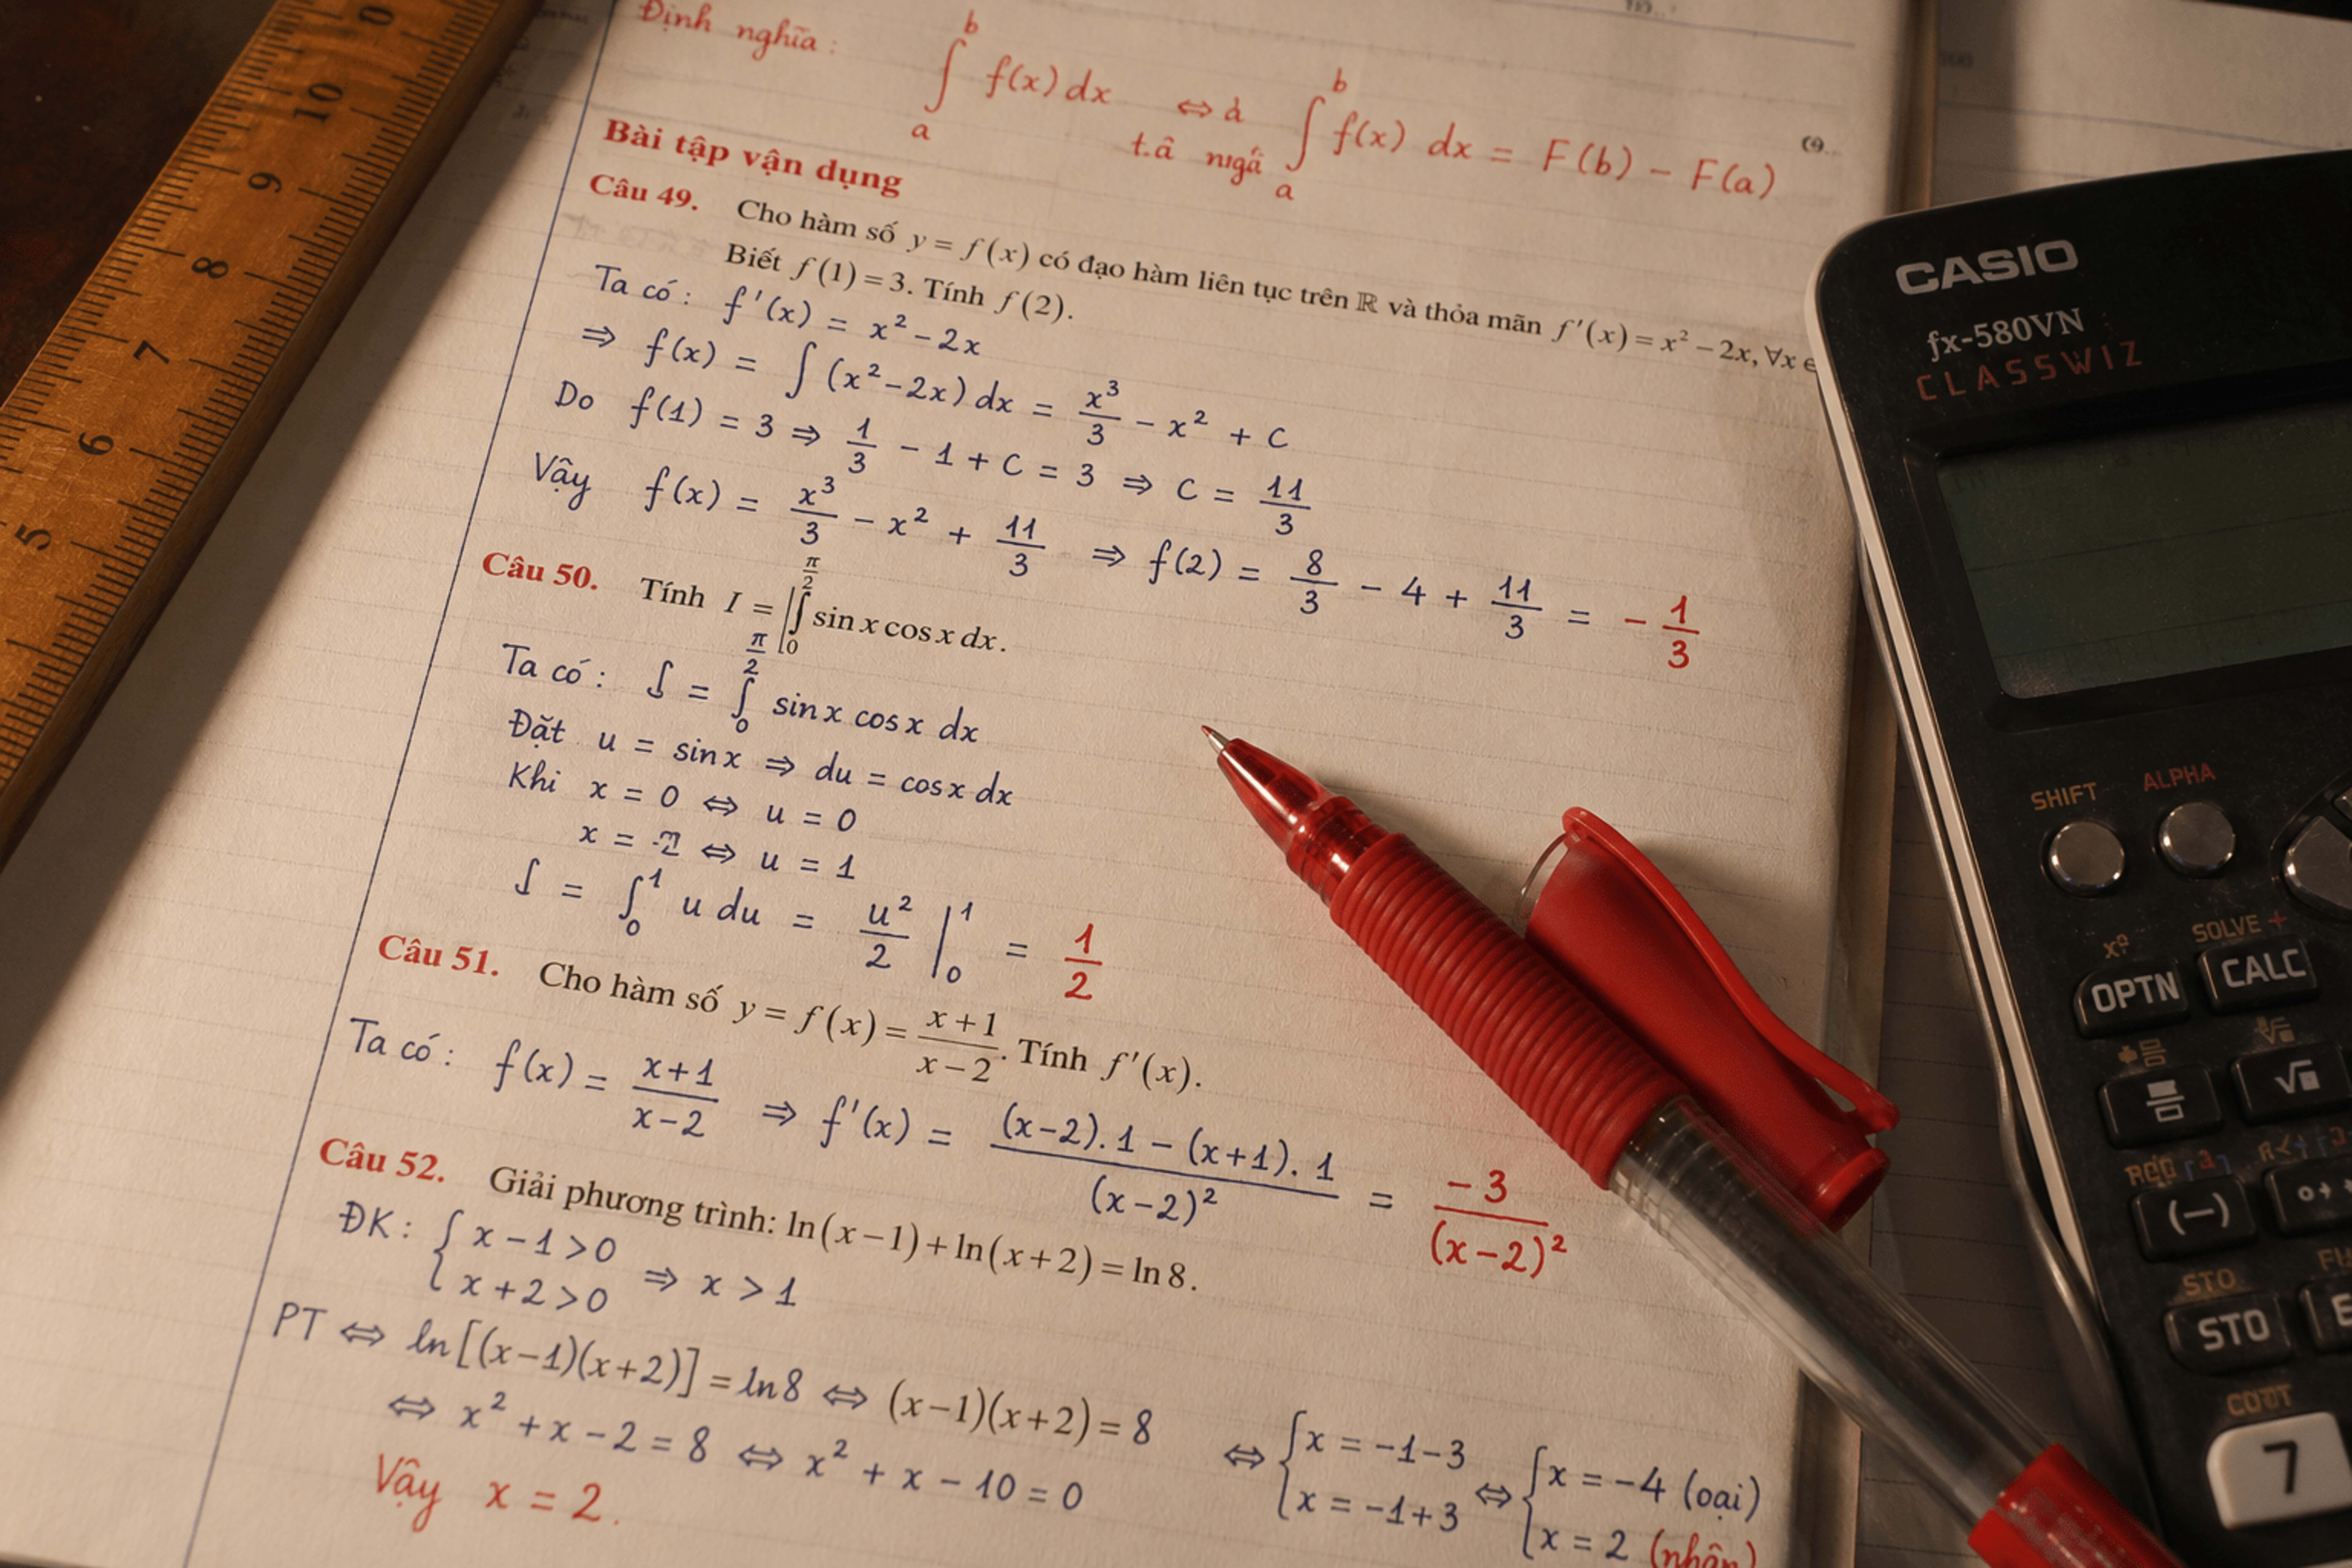 Định nghĩa : ∫_a^b f(x) dx ⇔ à t.â nigấ ∫_a^b f(x) dx = F(b) − F(a)
Bài tập vận dụng
Câu 49. Cho hàm số y = f(x) có đạo hàm liên tục trên ℝ và thỏa mãn f'(x) = x² − 2x, ∀x ∈
Biết f(1) = 3. Tính f(2).
Ta có : f'(x) = x² − 2x
⇒ f(x) = ∫ (x² − 2x) dx = x³/3 − x² + C
Do f(1) = 3 ⇒ 1/3 − 1 + C = 3 ⇒ C = 11/3
Vậy f(x) = x³/3 − x² + 11/3 ⇒ f(2) = 8/3 − 4 + 11/3 = − 1/3
Câu 50. Tính I = ∫_0^{π/2} sin x cos x dx.
Ta có : ∫ = ∫_0^{π/2} sin x cos x dx
Đặt u = sin x ⇒ du = cos x dx
Khi x = 0 ⇔ u = 0
x = ⇔ u = 1
∫ = ∫_0^1 u du = u²/2 |_0^1 = 1/2
Câu 51. Cho hàm số y = f(x) = (x+1)/(x−2). Tính f'(x).
Ta có : f(x) = (x+1)/(x−2) ⇒ f'(x) = ((x−2).1 − (x+1).1)/(x−2)² = −3/(x−2)²
Câu 52. Giải phương trình: ln(x−1) + ln(x+2) = ln 8.
ĐK : { x − 1 > 0
x + 2 > 0 ⇒ x > 1
PT ⇔ ln[(x−1)(x+2)] = ln 8 ⇔ (x−1)(x+2) = 8
⇔ x² + x − 2 = 8 ⇔ x² + x − 10 = 0
⇔ { x = −1−3
x = −1+3
⇔ { x = −4 (oại)
x = 2 (nhận)
Vậy x = 2.
10
9
8
7
6
5
CASIO
fx-580VN
CLASSWIZ
SHIFT ALPHA
SOLVE +
OPTN CALC
√
(−)
STO
STO
7